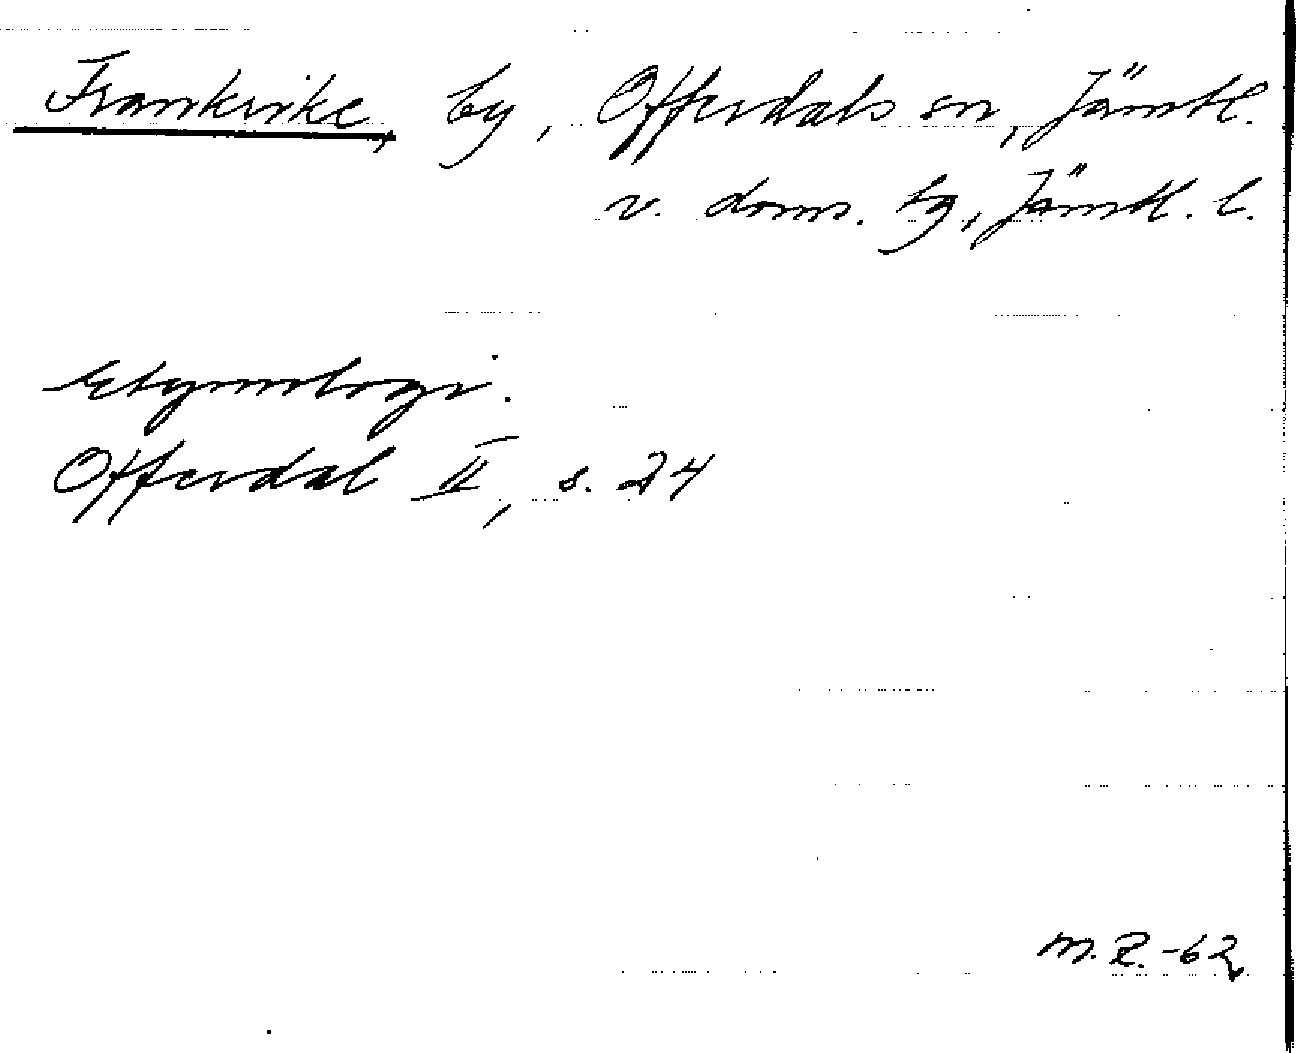 Frankrike, by, Offerdals sn, Jämtl.
v. doms. tg, Jämtl. l.
Etymologi.
Offerdal II, s. 24
M.R.-62